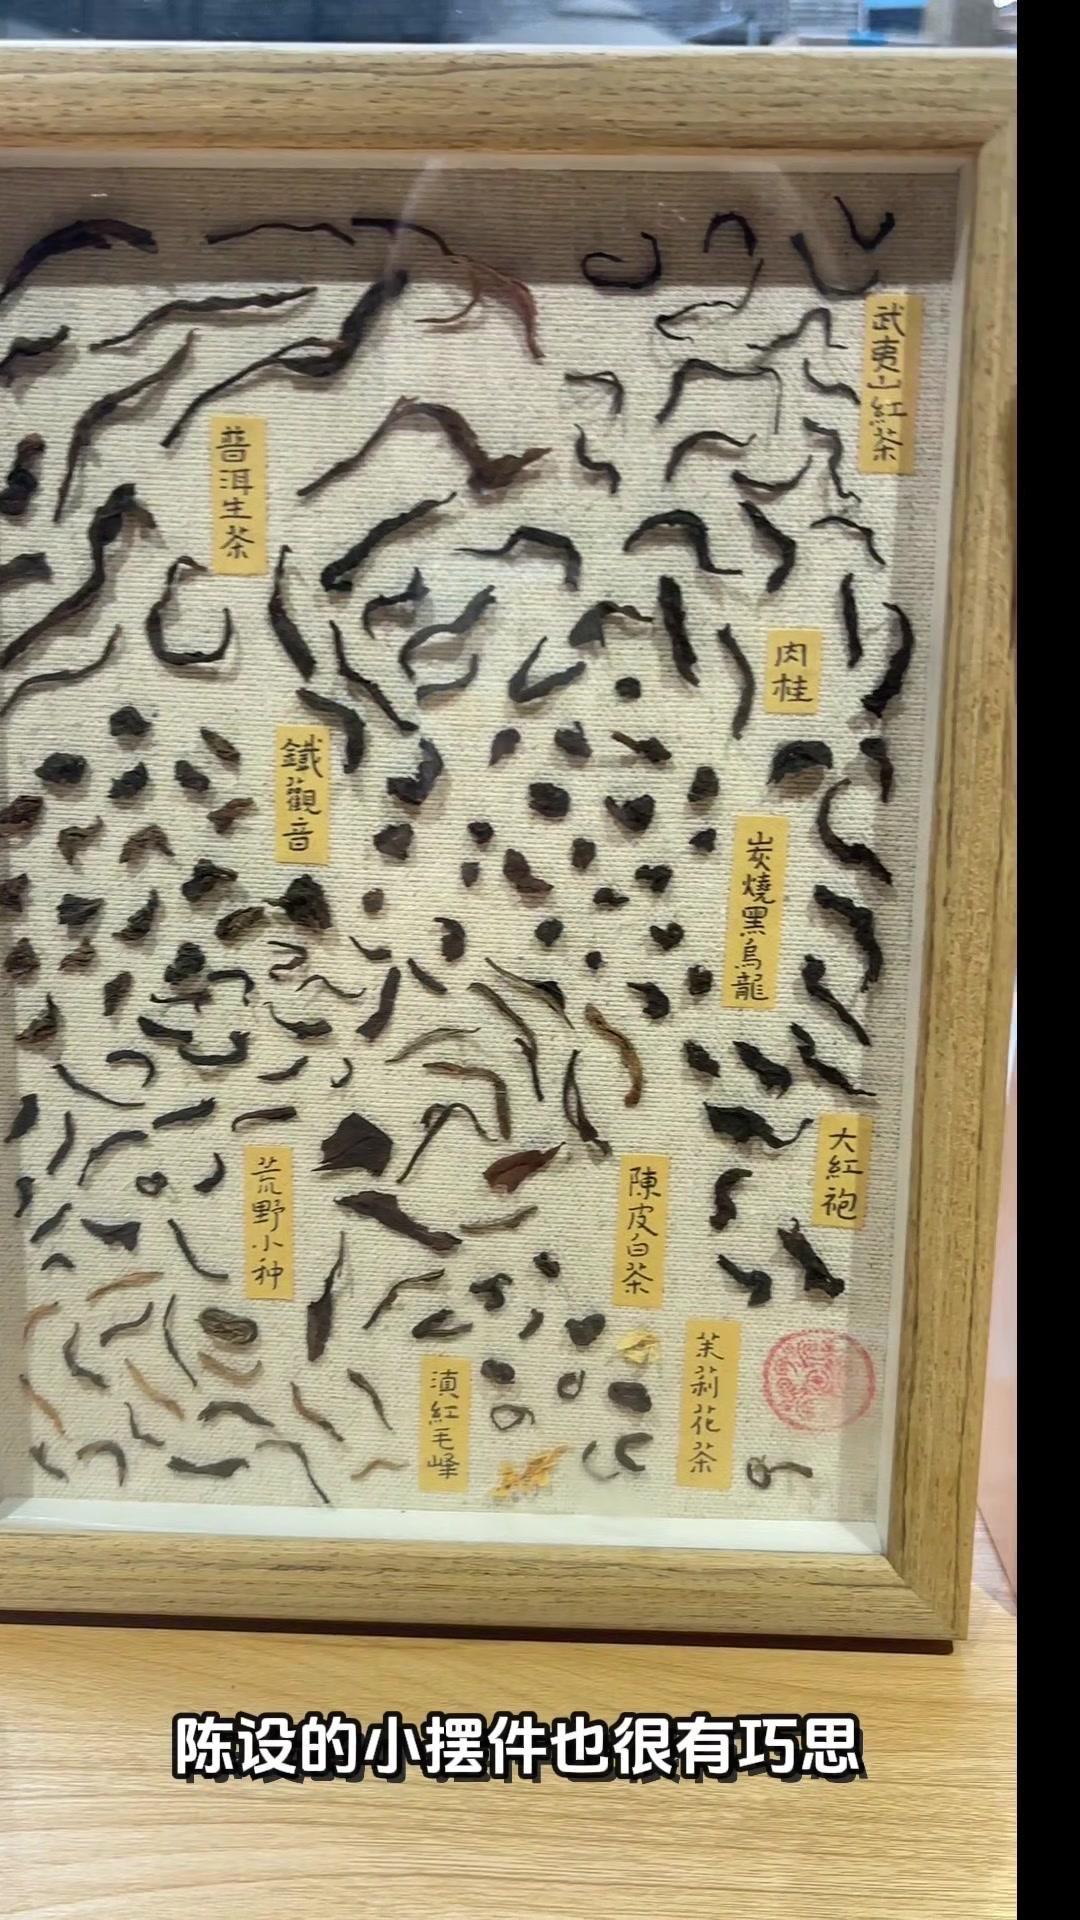 武夷山紅茶
普洱生茶
肉桂
鐵觀音
炭燒黑烏龍
大紅袍
荒野小种
陳皮白茶
茉莉花茶
滇紅毛峰
陈设的小摆件也很有巧思